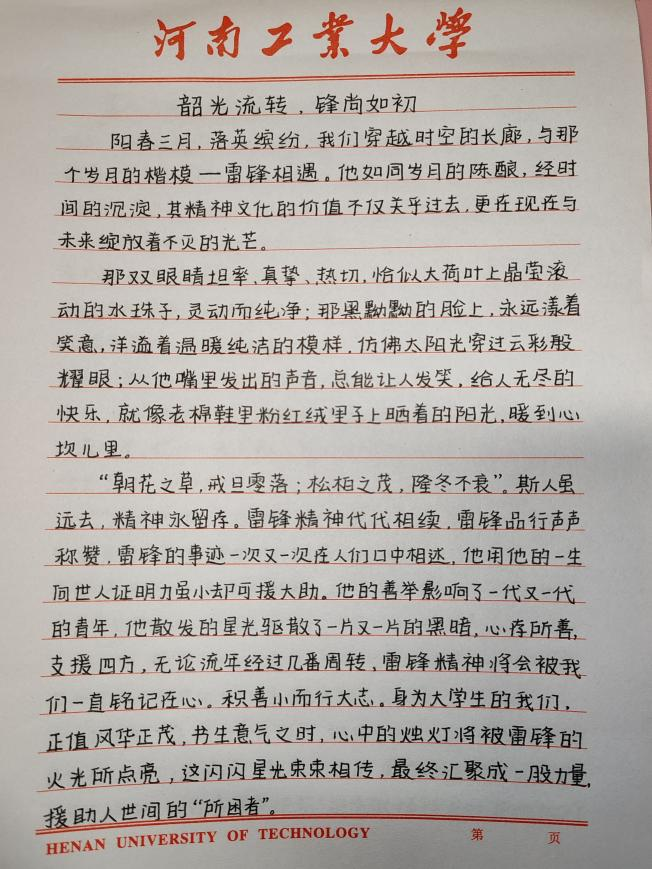 河南工業大學
韶光流转，锋尚如初
阳春三月，落英缤纷，我们穿越时空的长廊，与那
个岁月的楷模一雷锋相遇。他如同岁月的陈酿，经时
间的沉淀，其精神文化的价值不仅关乎过去，更在现在与
未来绽放着不灭的光芒。
那双眼睛坦率、真挚、热切，恰似大荷叶上晶莹滚
动的水珠子，灵动而纯净；那黑黝黝的脸上，永远漾着
笑意，洋溢着温暖纯洁的模样，仿佛太阳光穿过云彩般
耀眼；从他嘴里发出的声音，总能让人发笑，给人无尽的
快乐，就像老棉鞋里粉红绒里子上晒着的阳光，暖到心
坎儿里。
“朝花之草，戒旦零落；松柏之茂，隆冬不衰”。斯人虽
远去，精神永留存。雷锋精神代代相续，雷锋品行声声
称赞，雷锋的事迹一次又一次在人们口中相述，他用他的一生
向世人证明力虽小却可援大助。他的善举影响了一代又一代
的青年，他散发的星光驱散了一片又一片的黑暗，心存所善，
支援四方，无论流年经过几番周转，雷锋精神将会被我
们一直铭记在心。积善小而行大志。身为大学生的我们，
正值风华正茂，书生意气之时，心中的烛灯将被雷锋的
火光所点亮，这闪闪星光束束相传，最终汇聚成一股力量，
援助人世间的“所困者”。
HENAN UNIVERSITY OF TECHNOLOGY 第 页